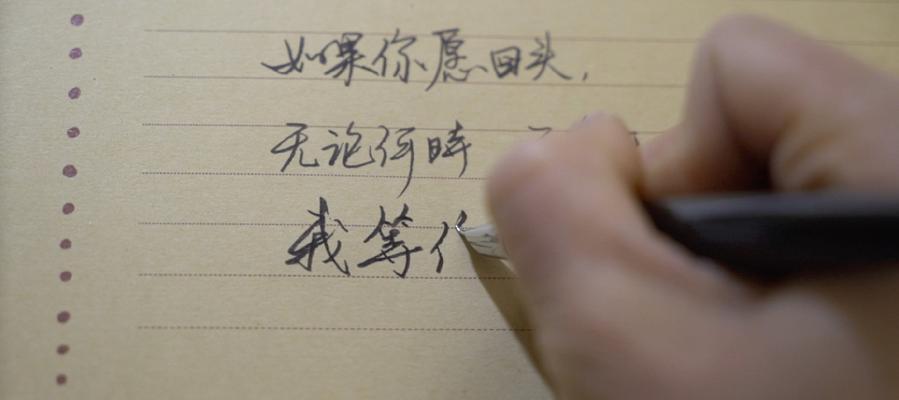 如果你愿回头,
无论何時
我等